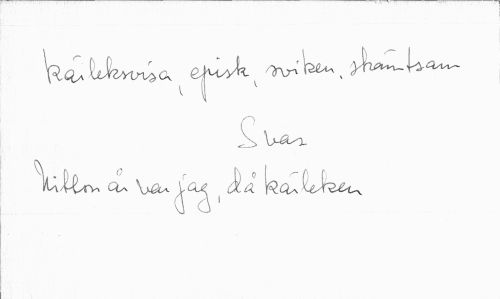 Kärleksvisa, episk, sviken, skämtsam
Svar
Nitton år var jag, då kärleken